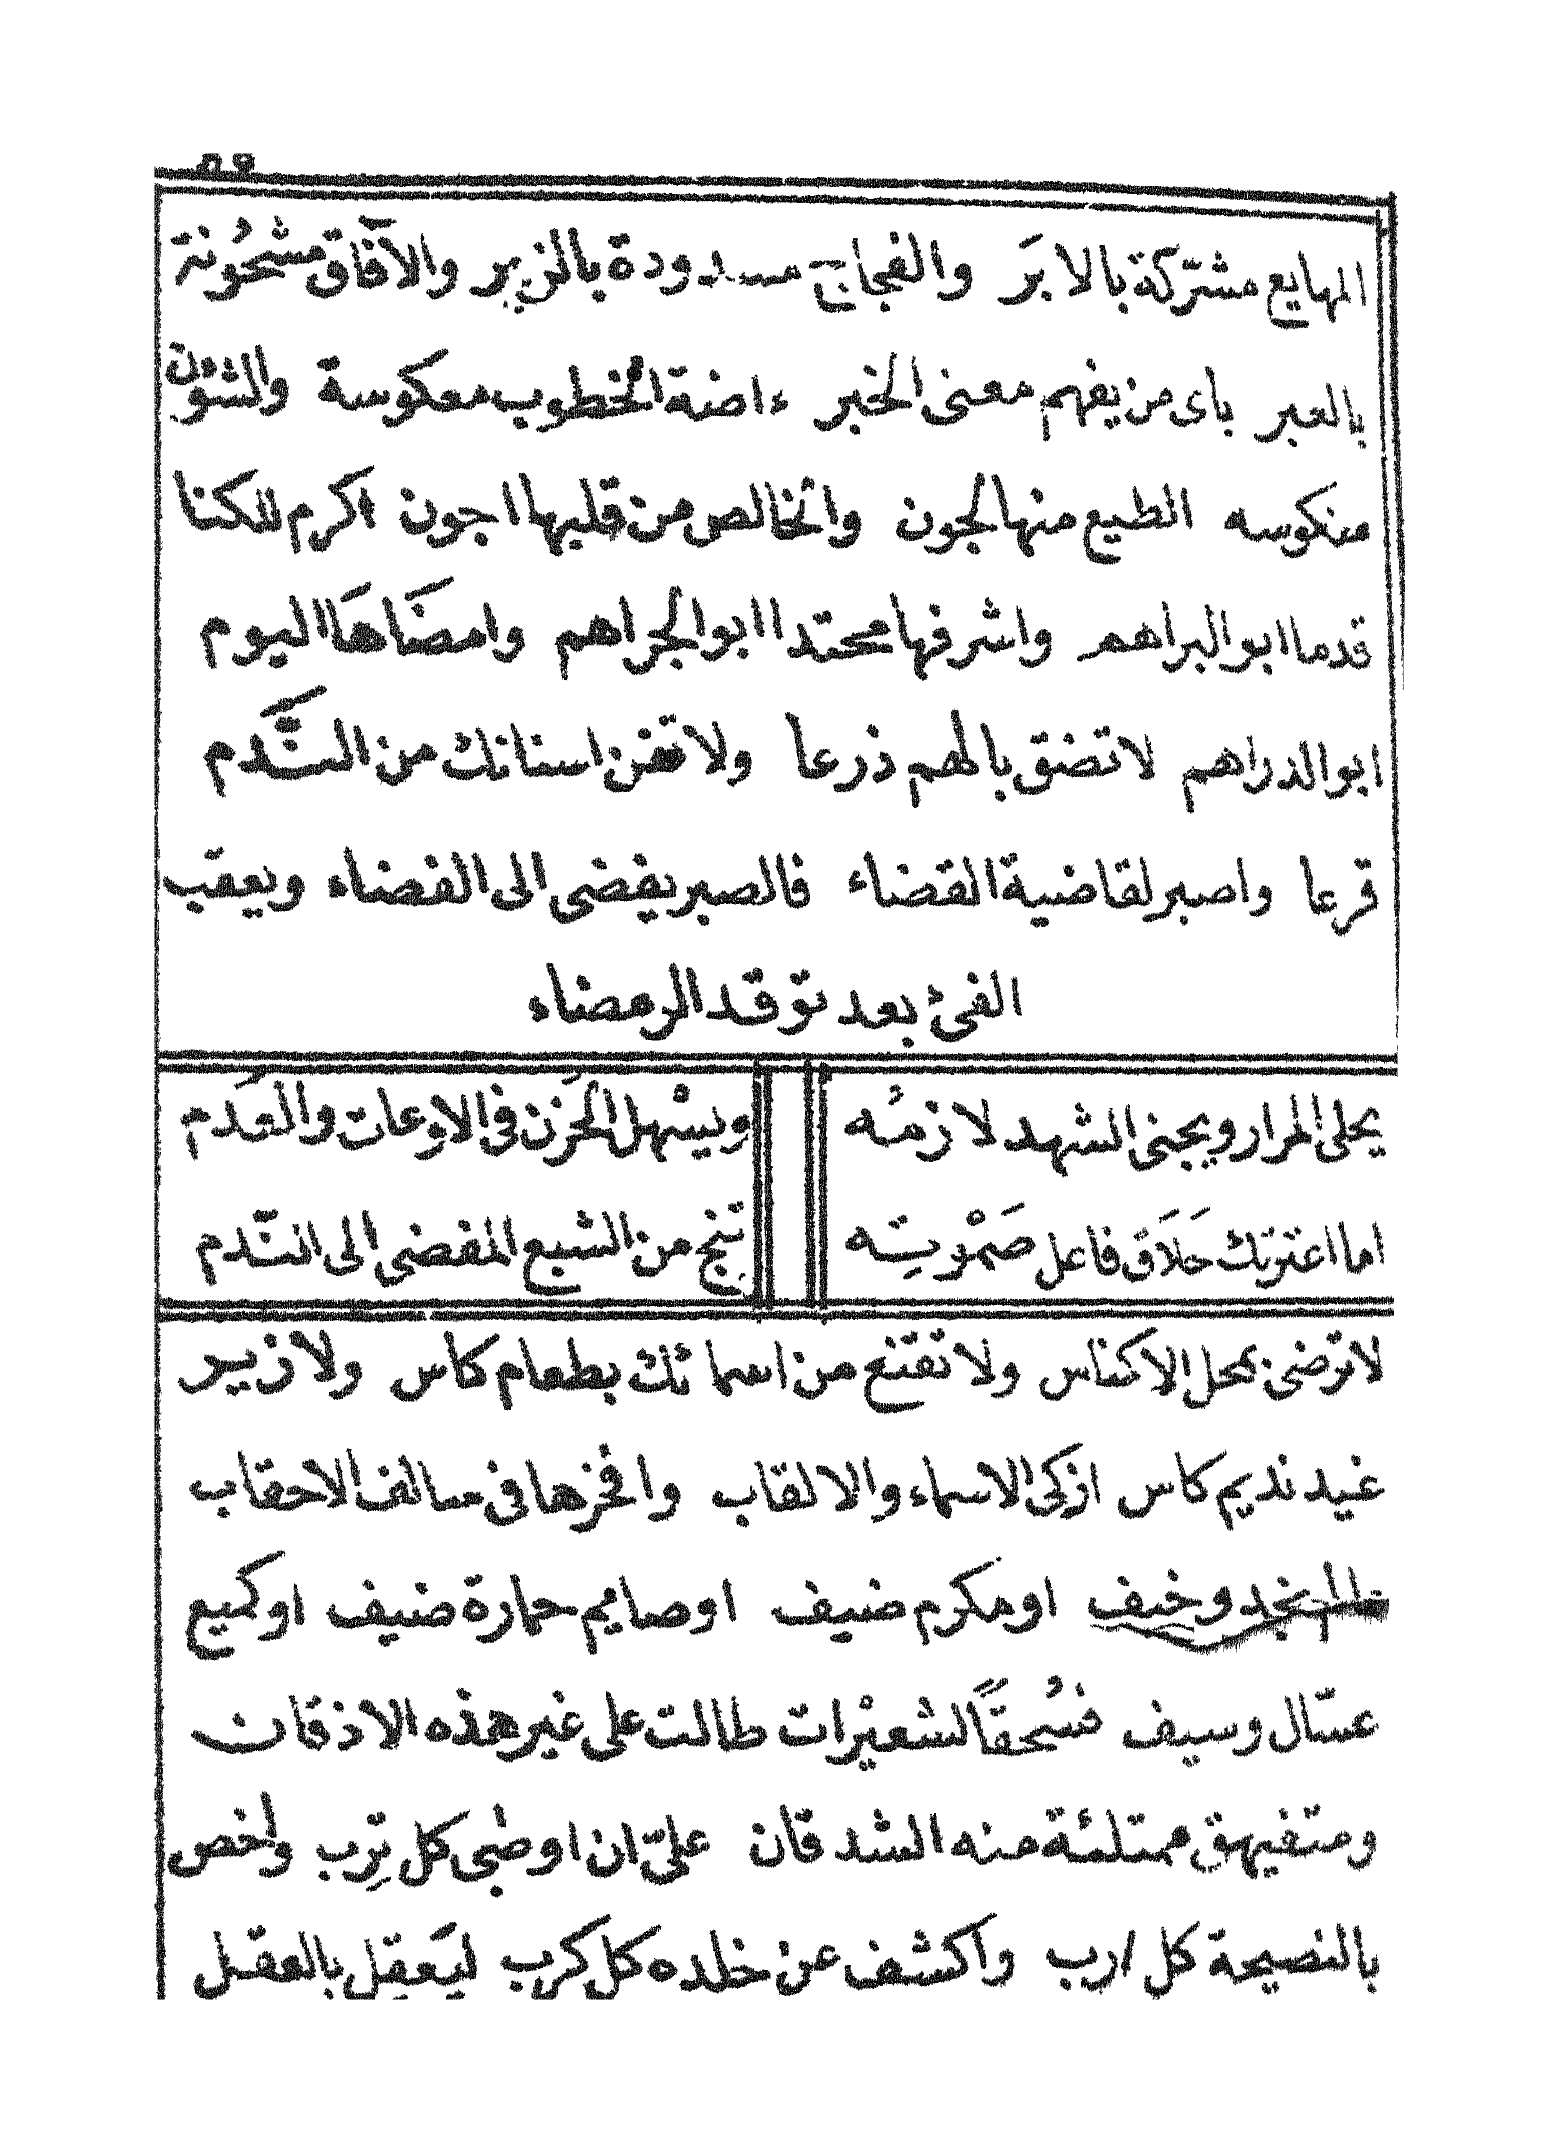 المهايع مشتركة بالابَر والفجاج مسدودة بالزبر والآفاق مشحُونة
بالعبر باى من يفهم معنى الخبر ءاضة الخطوب معكوسة والشوٴن
منكوسه الطيع منها لجون والخالص من قلبها اجون اكرم للكنا
قدما ابو البراهم واشرفها محتدا ابو الجراهم وامضَاهَا اليوم
ابو الدراهم لا تضق بالهم ذرعا ولا تقرن اسنانك من النَّدم
قرعا واصبر لقاضية القضاء فالصبر يفضى الى الفضاء ويعقب
الفئ بعد توقد الرمضاء
يحلى المرار ويجنى الشهد لازمُه ويسْهل الحَزن فى الاوعات والعَدم
اما اعترتك حَلَاق فاعل صَمْوتِه تنج من الشبع المفضى الى النّدم
لا ترضى بمحل الاكناس ولا تقتنع من اسمائك بطعام كاس ولا زير
غيد نديم كاس ازكى الاسماء والالقاب وافخرها فى سالف الاحقاب
بنجد وخيف او مكرم ضيف او صايم حمارة ضيف او كميع
عسّال وسيف فسُحقًا لشعيْرات طالت على غير هذه الاذقان
ومتفيهق ممتلئة منه الشدقان علىّ ان اوصى كل تِرب واخص
بالنصيحة كل ارب واكشف عن خلده كل كرب ليَعقِل بالعقل